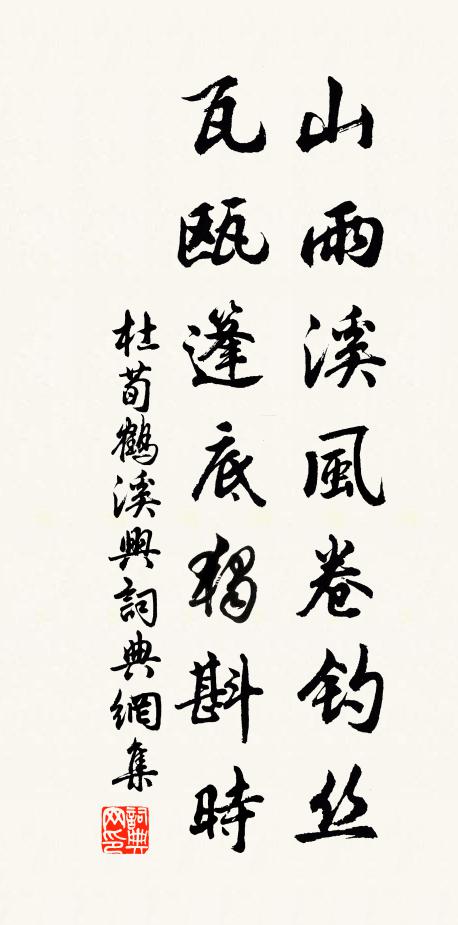 山雨溪風卷钓丝
瓦瓯篷底獨斟時
杜荀鶴溪興詞典網集
詞典网印